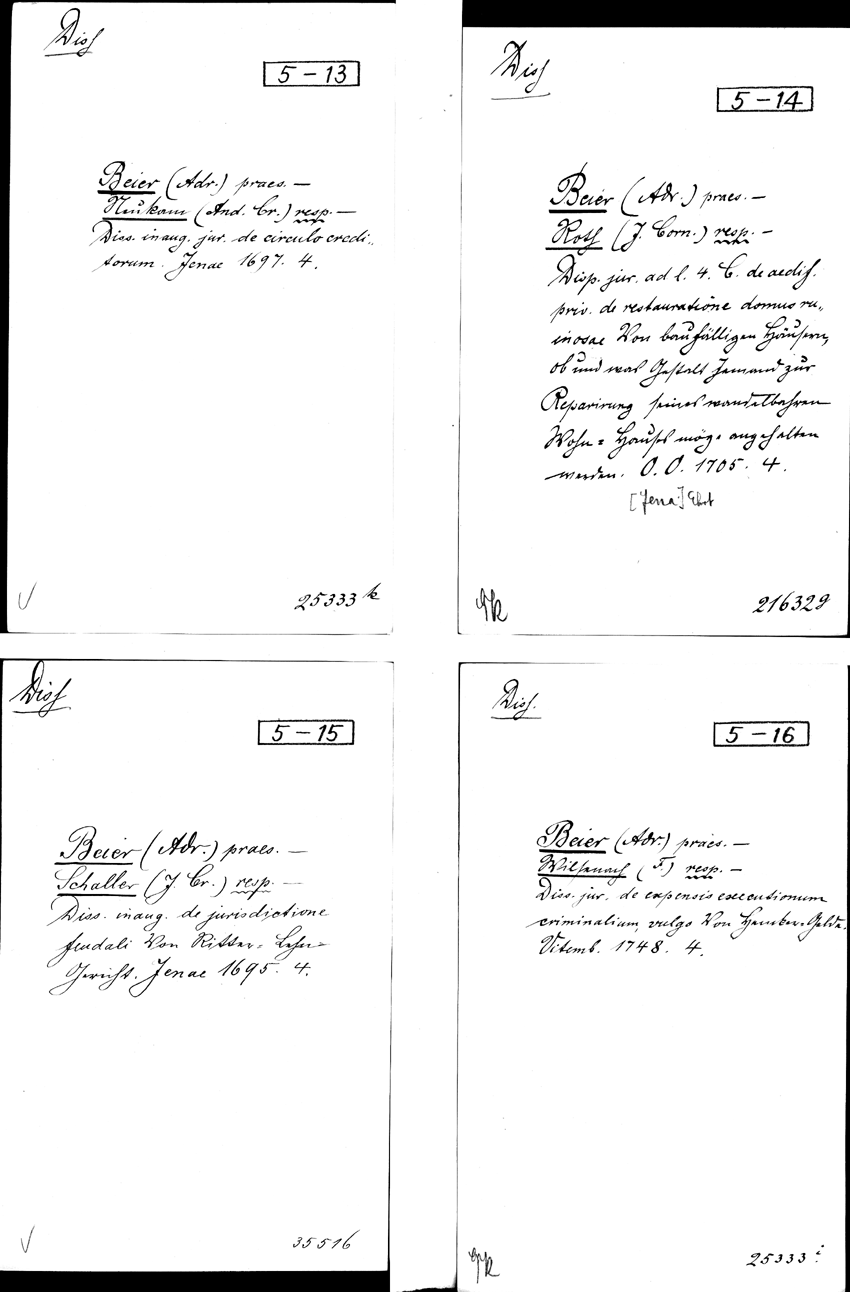 Diss
5 – 13
Beier (Adr.) praes. —
Neukam (And. Cr.) resp. —
Diss. inaug. jur. de circulo credi-
torum. Jenae 1697. 4.
25333 k
Diss
5 – 14
Beier (Adr.) praes. —
Roth (J. Corn.) resp. —
Disp. jur. ad l. 4. C. de aedif.
priv. de restauratione domus ru-
inosae Von baufälligen Häusern,
ob und was Gestalt Jemand zur
Reparirung seines wandelbahren
Wohn = Hauses möge angehalten
werden. O. O. 1705. 4.
[Jena]
216329
Diss
5 – 15
Beier (Adr.) praes. —
Schaller (J. Cr.) resp. —
Diss. inaug. de jurisdictione
feudali Von Ritter- Lehn-
Gericht. Jenae 1695. 4.
35516
Diss.
5 – 16
Beier (Adr.) praes. —
(F.) resp. —
Diss. jur. de expensis executionum
criminalium, vulgo Von Hencker-Gelde.
Vitemb. 1748. 4.
25333 i